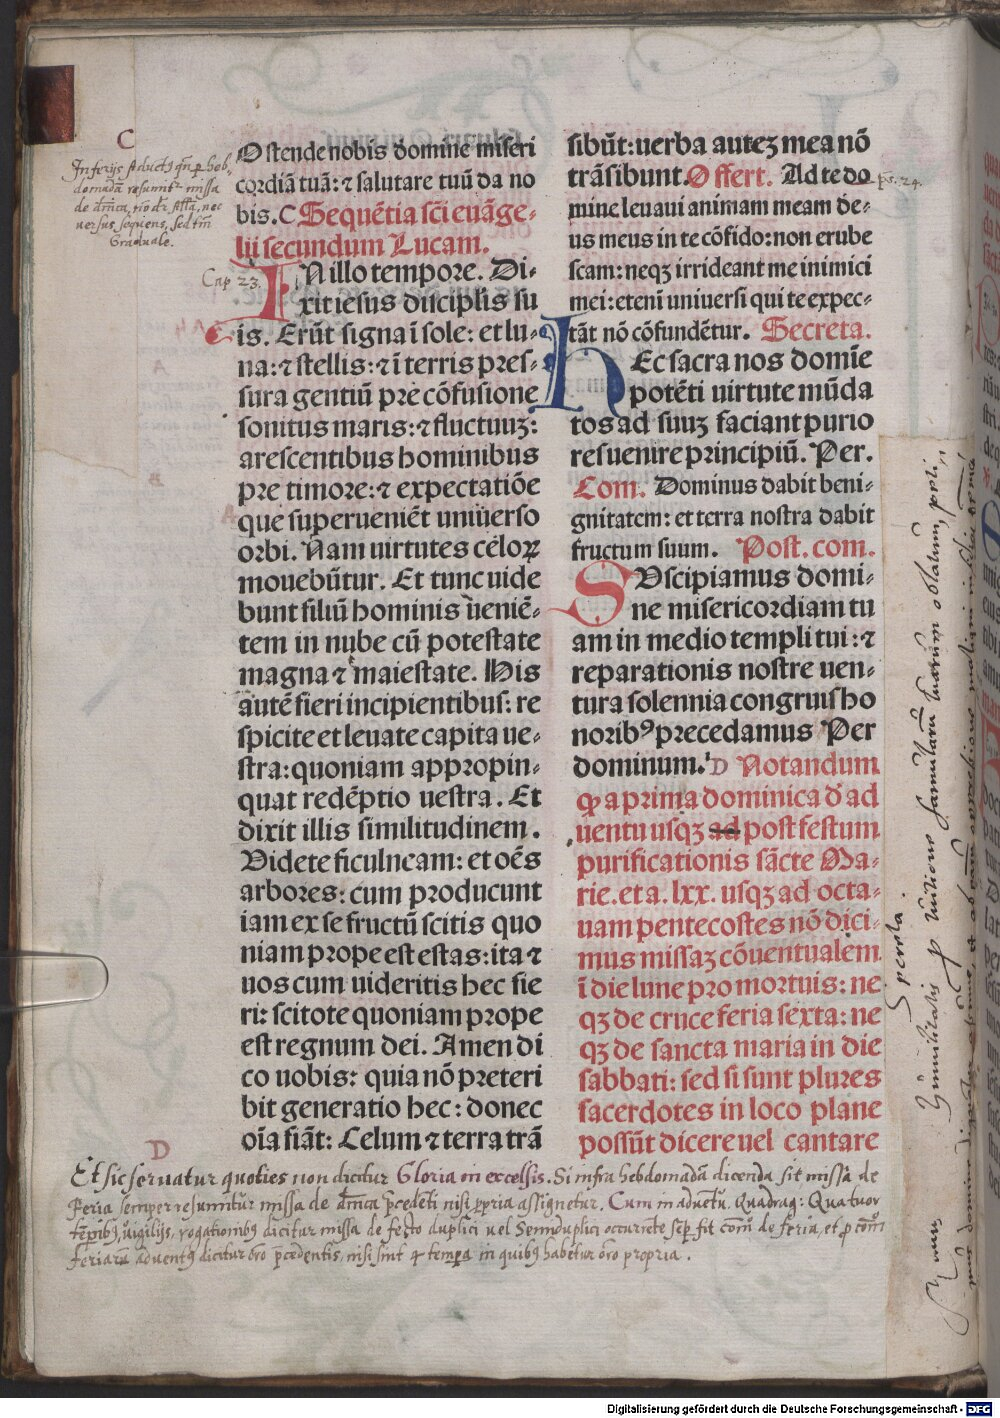 C
In ferijs aduentus quando per heb-
domadā resumitur missa
de dnica, nō dr Alla, nec
uersus sequens, sed tm
Graduale.
Ostende nobis domine miseri
cordiā tuā: ⁊ salutare tuū da no
bis. C Sequētia scī euāge-
lii secundum Lucam.
Cap 23.
IN illo tempore. Di-
xit iesus discipl'is su
is. Erūt signa ī sole: et lu-
na: ⁊ stellis: ⁊ ī terris pres-
sura gentiū pre cōfusione
sonitus maris: ⁊ fluctuuꝫ:
arescentibus hominibus
pre timore: ⁊ expectatiōe
que superueniēt uniuerso
orbi. Nam uirtutes celoꝝ
mouebūtur. Et tunc uide
bunt filiū hominis ueniē-
tem in nube cū potestate
magna ⁊ maiestate. His
autē fieri incipientibus: re
spicite et leuate capita ue-
stra: quoniam appropin-
quat redēptio uestra. Et
dixit illis similitudinem.
Videte ficulneam: et oēs
arbores: cum producunt
iam ex se fructū scitis quo
niam prope est estas: ita ⁊
uos cum uideritis hec fie
ri: scitote quoniam prope
est regnum dei. Amen dī
co uobis: quia nō preteri
bit generatio hec: donec
oīa fiāt: Celum ⁊ terra trā
sibūt: uerba auteꝫ mea nō
trāsibunt. Offert. Ad te do
ps. 24.
mine leuaui animam meam de-
us meus in te cōfido: non erube
scam: neqꝫ irrideant me inimici
mei: etenī uniuersi qui te expec-
tāt nō cōfundētur. Secreta.
HEc sacra nos domīe
potēti uirtute mūda
tos ad suuꝫ faciant purio
res uenire principiū. Per.
Com. Dominus dabit beni-
gnitatem: et terra nostra dabit
fructum suum. Post. com.
SUscipiamus domi-
ne misericordiam tu
am in medio templi tui: ⁊
reparationis nostre uen-
tura solennia congruis ho
noribꝰ precedamus Per
dominum. D Notandum
ꝙ a prima dominica d' ad
uentu usqꝫ ad post festum
purificationis sācte Ma-
rie. et a. lxx. usqꝫ ad octa-
uam pentecostes nō dici-
mus missaꝫ cōuentualem
ī die lune pro mortuis: ne
qꝫ de cruce feria sexta: ne
qꝫ de sancta maria in die
sabbati: sed si sunt plures
sacerdotes in loco plane
possūt dicere uel cantare
D
Et sic seruatur quoties non dicitur Gloria in excelsis. Si infra hebdomadā dicenda sit missa de
Feria semper resumitur missa de dnica pcedēti nisi ppria assignetur. Cum in aduētu, Quadrag: Quatuor
tēpibꝰ, uigilijs, rogationibꝰ dicitur missa de festo duplici uel Semiduplici occurrēte sēp fit comō de feria, et p comō
feriarū aduentꝰ dicitur orō pcedentis, nisi sint 4 tempa in quibꝰ habētur orō propria.
Secreta.
Digitalisierung gefördert durch die Deutsche Forschungsgemeinschaft - DFG